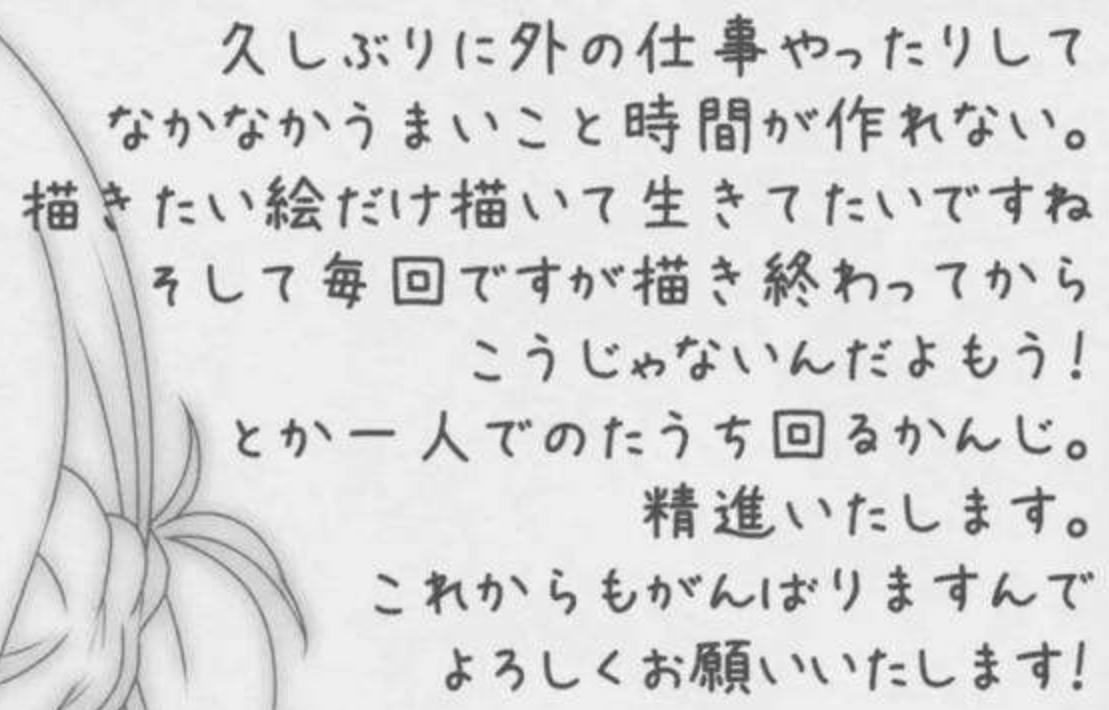 久しぶりに外の仕事やったりして
なかなかうまいこと時間が作れない。
描きたい絵だけ描いて生きてたいですね
そして毎回ですが描き終わってから
こうじゃないんだよもう！
とか一人でのたうち回るかんじ。
精進いたします。
これからもがんばりますんで
よろしくお願いいたします！